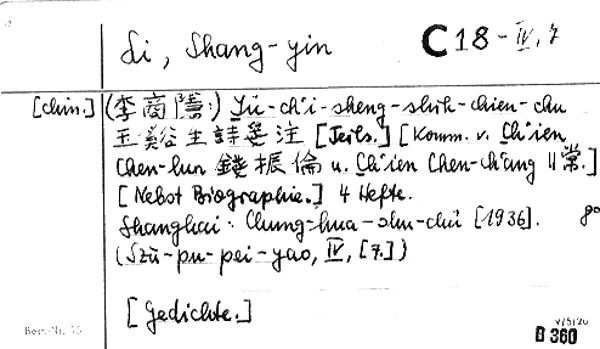 Li, Shang-yin
C 18-IV,7
[chin.] (李商隱:) Yü-ch'i-sheng-shih-chien-chu
玉谿生詩箋注 [Teils.] [Komm. v. Ch'ien
Chen-lun 錢振倫 u. Ch'ien Chen-ch'ang 〃常.]
[Nebst Biographie.] 4 Hefte.
Shanghai: Chung-hua-shu-chü [1936]. 8°
(Szŭ-pu-pei-yao, IV, [7.])
[Gedichte.]
Best.-Nr. 15
V/5/20
B 360